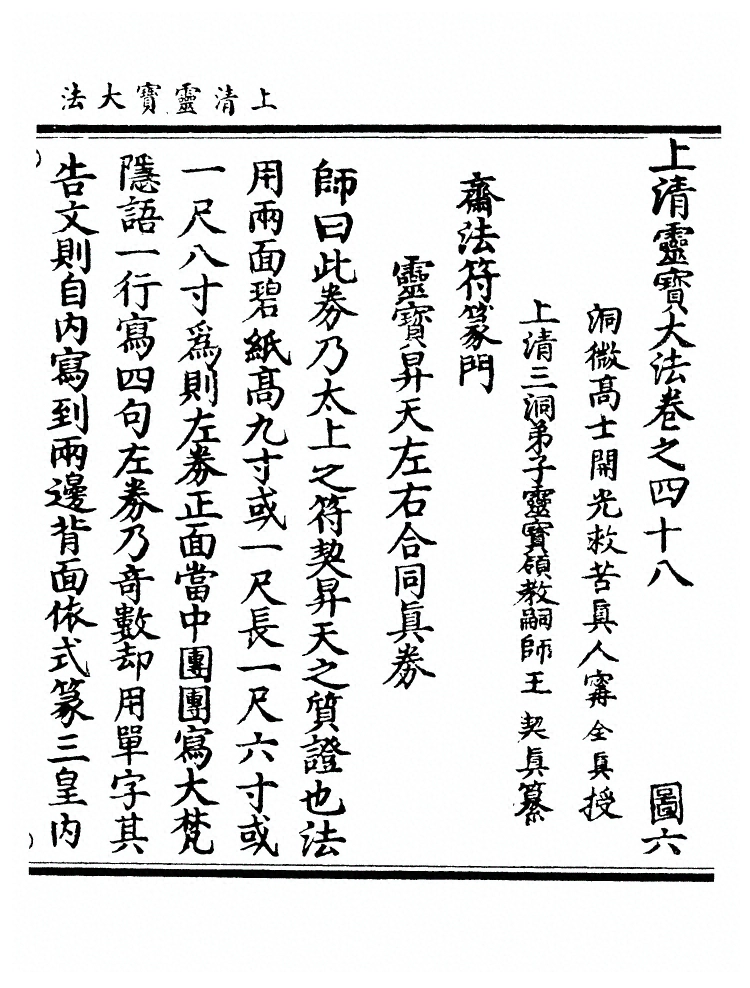 上清靈寶大法
上清靈寶大法卷之四十八　圖六
洞微高士開光救苦眞人甯全眞授
上清三洞弟子靈寶領教嗣師王　契眞纂
齋法符篆門
靈寶昇天左右合同眞券
師曰此券乃太上之符契昇天之質證也法
用兩面碧紙高九寸或一尺長一尺六寸或
一尺八寸爲則左券正面當中團團寫大梵
隱語一行寫四句左券乃奇數却用單字其
告文則自內寫到兩邊背面依式篆三皇內